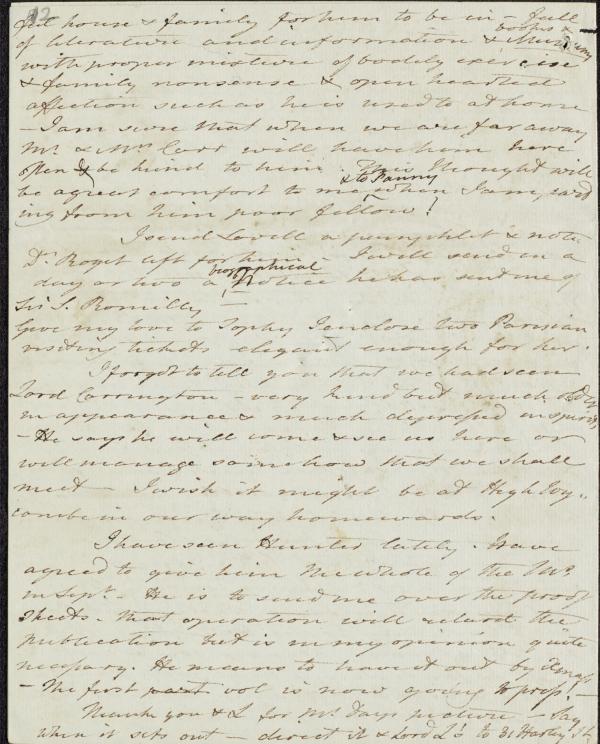 12
ful house & family for him to be in – full
of literature and information & books & Museumy
with proper mixture of bodily exercise
& family nonsense & open hearted
affection such as he is used to at home
– I am sure that when we are far away
Mr. & Mrs. Carr will have him here
often & be kind to him. This thought will
be a great comfort to me & to Fanny when I am part
ing from him poor fellow!
I send Lovell a pamphlet & note
Dr. Roget left for him – I will send in a
day or two a biographical Notice he has sent me of
Sir S. Romilly –
Give my love to Sophy I enclose two Parisian
visiting tickets elegant enough for her.
I forgot to tell you that we had seen
Lord Carrington – very kind but much older
in appearance & much depressed in spirits
– He says he will come & see us here or
will manage somehow that we shall
meet – I wish it might be at High Wy-
combe in our way homewards.
I have seen Hunter lately. Have
agreed to give him the whole of the MS
in Sept. – He is to send me over the proof
sheets. that operation will retard the
publication but is in my opinion quite
necessary. He means to have it out by Xmass
– The first part vol is now going to press! –
Thank you & L for Mr. Days picture – Say
when it sets out – direct it & Lord L's to 31 Harley St